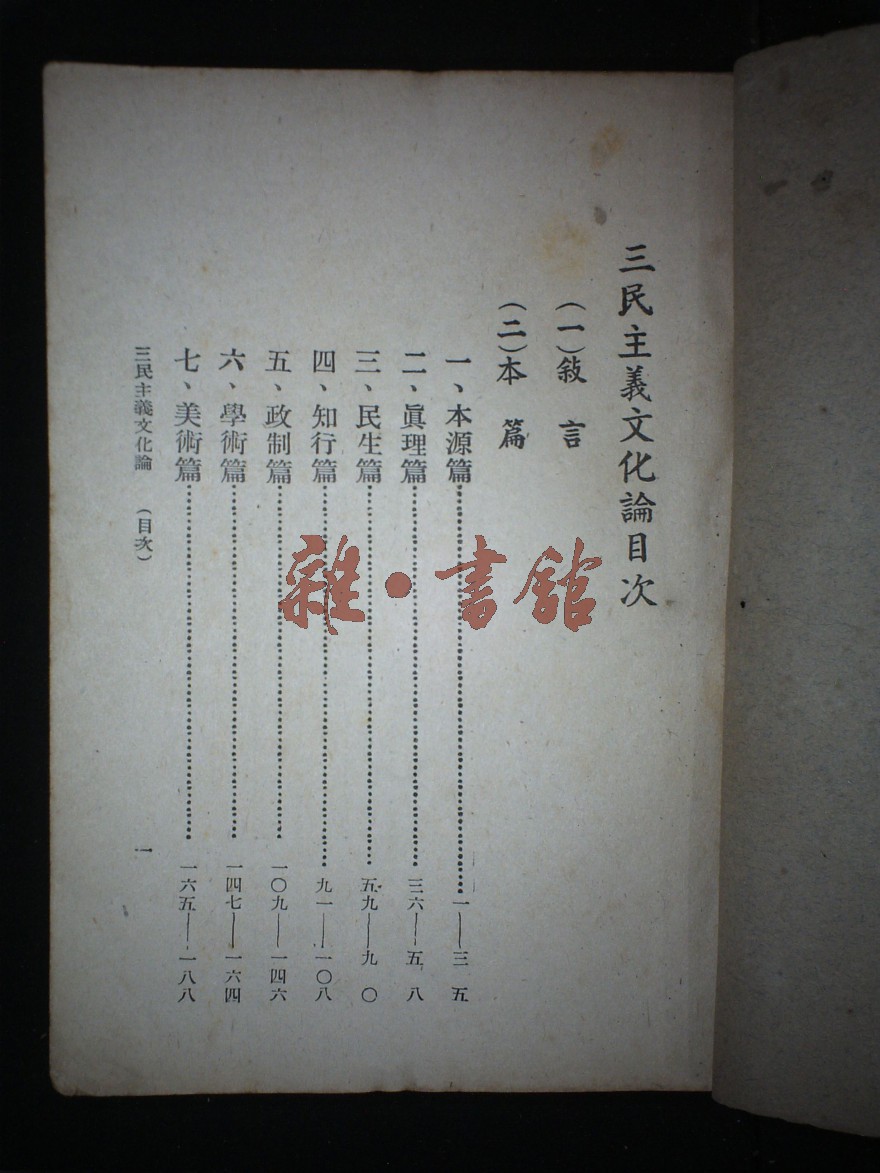 三民主義文化論目次
(一)敍言
(二)本篇
一、本源篇……一——三五
二、眞理篇……三六——五八
三、民生篇……五九——九〇
四、知行篇……九一——一〇八
五、政制篇……一〇九——一四六
六、學術篇……一四七——一六四
七、美術篇……一六五——一八八
三民主義文化論 (目次) 一
雜·書館